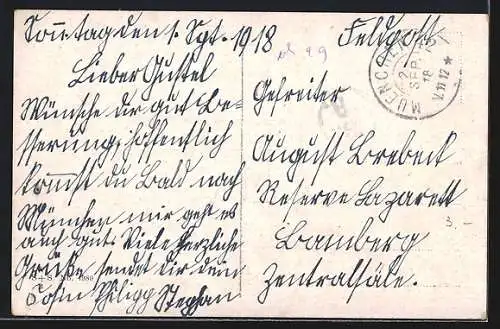 Sonntag den 1. Spt. 1918
Lieber Gustel
Wünsche dir gut Be-
sserung, hoffentlich
kommst du Bald nach
München mir geht es
auch gut. Viele herzliche
Grüße sendet dir dein
Cosin Philipp Stephan
Feldpost
MUENCHEN
2
SEP.
18
V. 11 12 *
Gefreiter
August Brebeck
Reserve Lazarett
Bamberg
Zentralsäle.
3.-